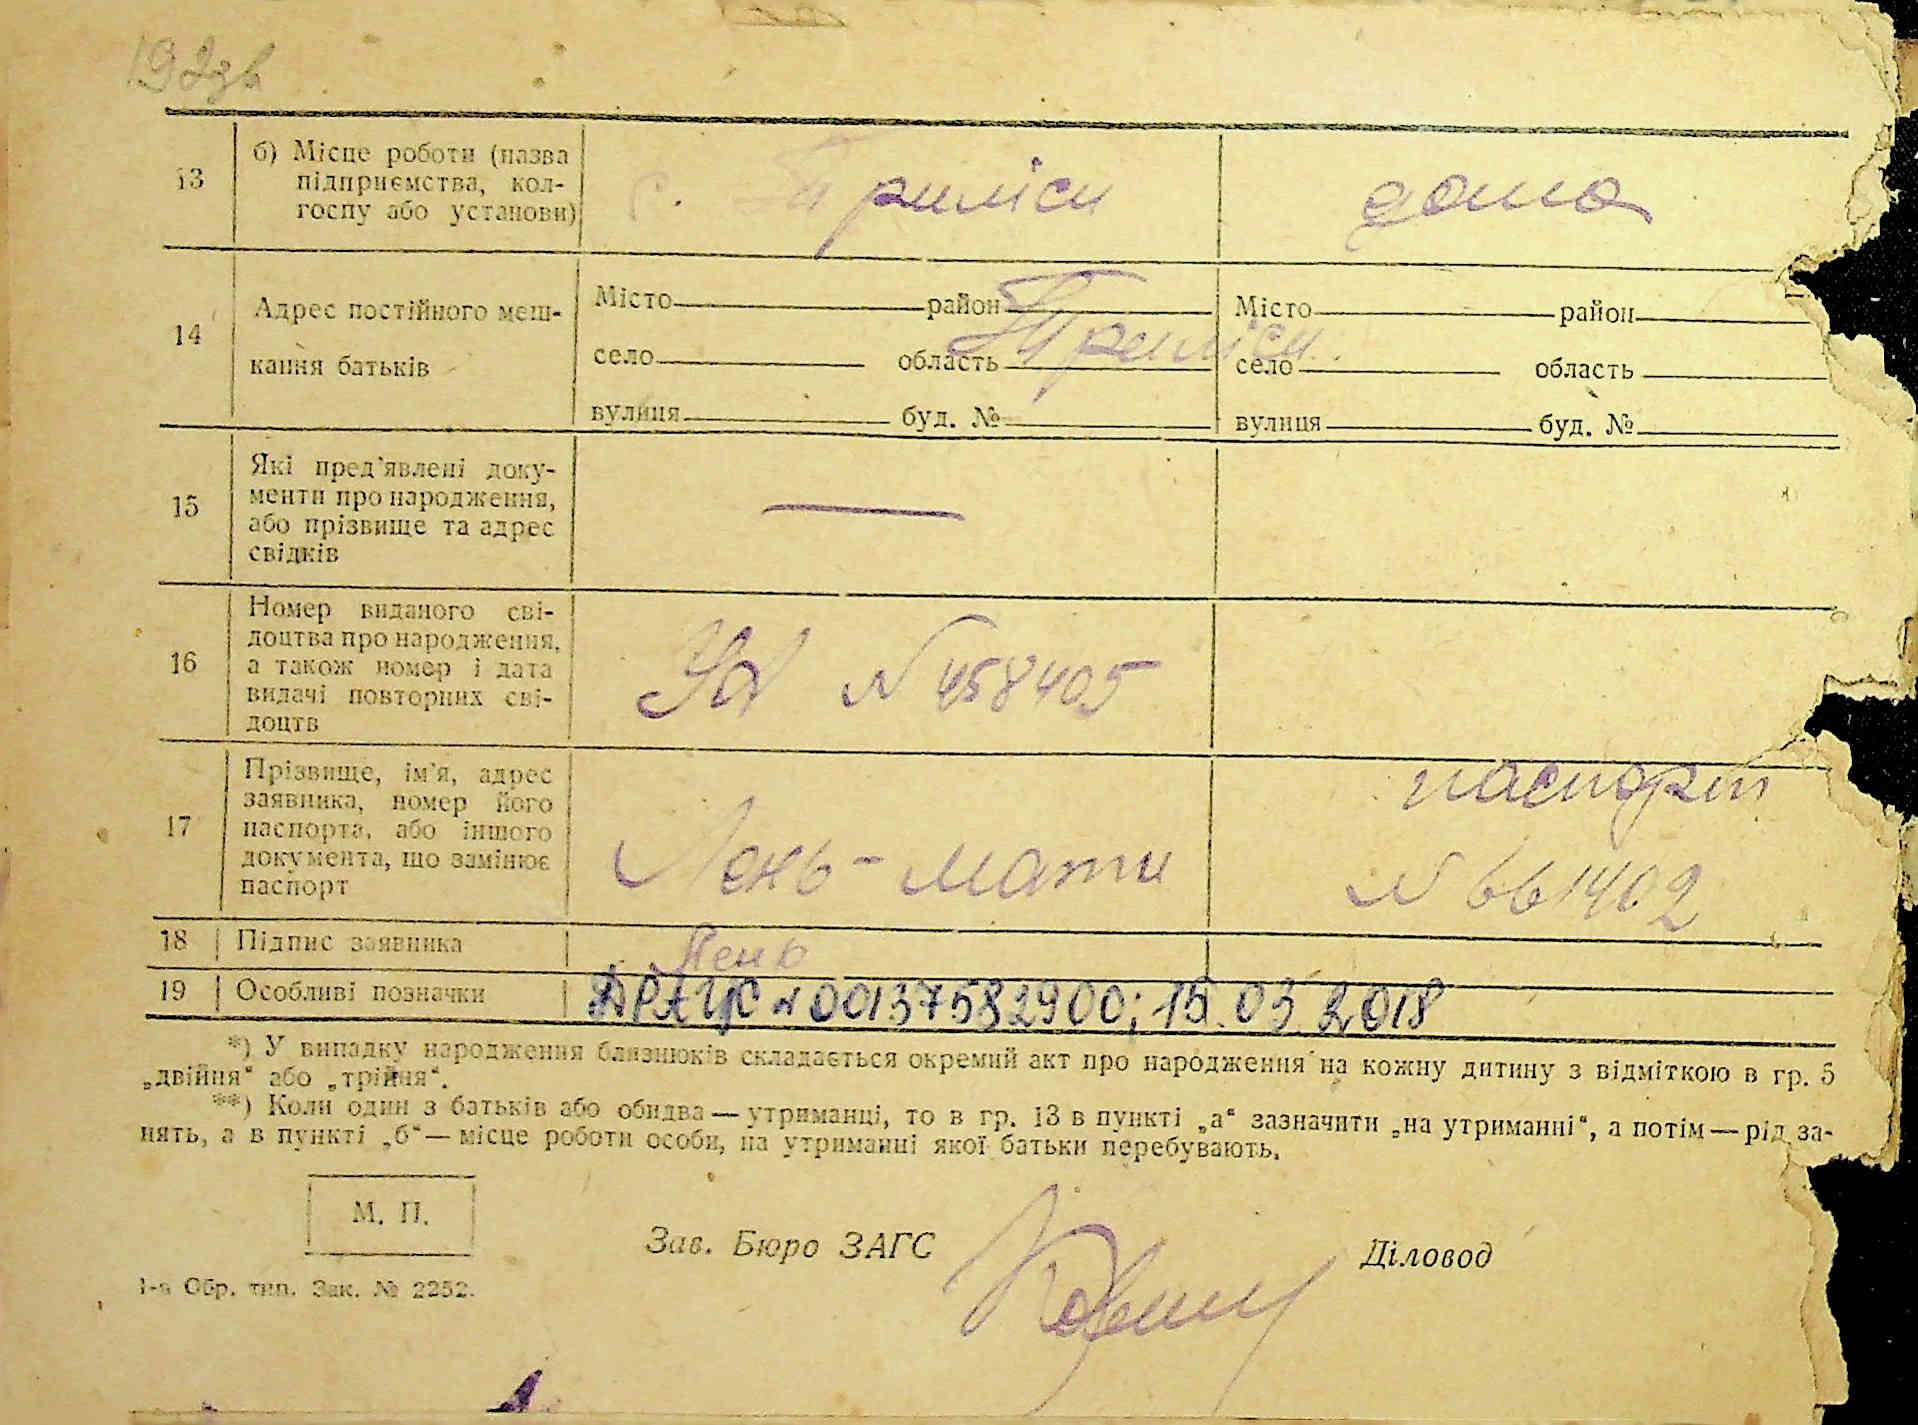 192зв
13
б) Місце роботи (назва
підприємства, кол-
госпу або установи)
с. Приліси
дома
14
Адрес постійного меш-
кання батьків
Місто район
село область
вулиця буд. №
Приліси
Місто район
село область
вулиця буд. №
15
Які пред'явлені доку-
менти про народження,
або прізвище та адрес
свідків
—
16
Номер виданого сві-
доцтва про народження,
а також номер і дата
видачі повторних сві-
доцтв
№ 458405
17
Прізвище, ім'я, адрес
заявника, номер його
паспорта, або іншого
документа, що замінює
паспорт
Лень - мати
паспорт
№ 661402
18 Підпис заявника
Лень
19 Особливі позначки
ДРАЦС № 00137582900; 15.03.2018
*) У випадку народження близнюків складається окремий акт про народження на кожну дитину з відміткою в гр. 5
„двійня“ або „трійня“.
**) Коли один з батьків або обидва — утриманці, то в гр. 13 в пункті „а“ зазначити „на утриманні“, а потім — рід за-
нять, а в пункті „б“ — місце роботи особи, на утриманні якої батьки перебувають.
М. П.
Зав. Бюро ЗАГС
Діловод
1-а Обр. тип. Зак. № 2252.